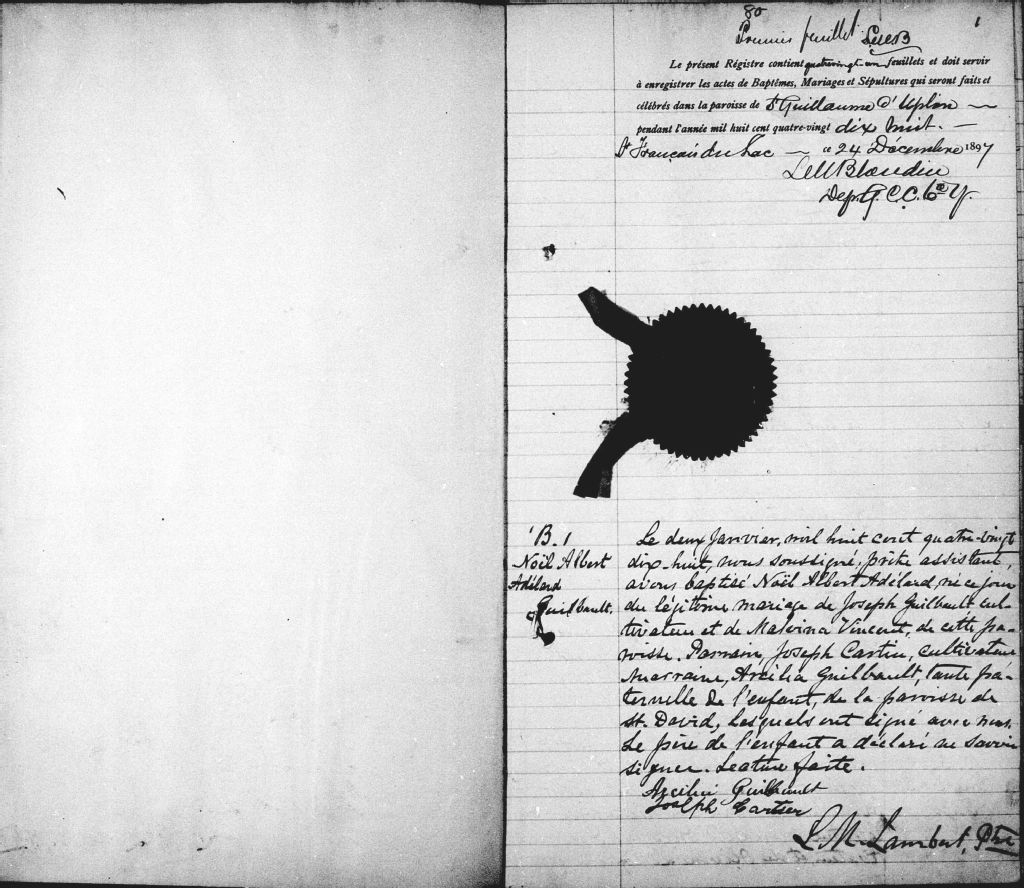 80
1
Premier feuillet
Le présent Régistre contient quatrevingt un feuillets et doit servir
à enregistrer les actes de Baptêmes, Mariages et Sépultures qui seront faits et
célébrés dans la paroisse de St Guillaume d'Upton —
pendant l'année mil huit cent quatre-vingt dix huit. —
St François du Lac — ce 24 Décembre 1897
Blondin
Dep. G. C. C.
B. 1
Noël Albert
Adélard
Guilbault.
Le deux janvier, mil huit cent quatre-vingt
dix-huit, nous soussigné, prêtre assistant,
avons baptisé Noël Albert Adélard, né ce jour
du légitime mariage de Joseph Guilbault cul-
tivateur et de Malvina Vincent, de cette pa-
roisse. Parrain, Joseph Cartier, cultivateur
marraine, Arcilia Guilbault, tante pa-
ternelle de l'enfant, de la paroisse de
St. David, lesquels ont signé avec nous.
Le père de l'enfant a déclaré ne savoir
signer. Lecture faite.
Arcilia Guilbault
Joseph Cartier
L. M. Lambert, Ptre